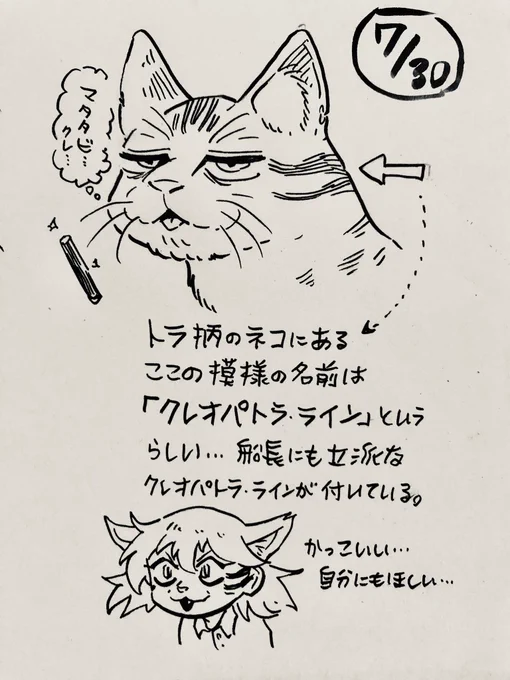 7/30
マタタビ…
クレ…
トラ柄のネコにある
ここの模様の名前は
「クレオパトラ・ライン」という
らしい… 船長にも立派な
クレオパトラ・ラインが付いている。
かっこいい…
自分にもほしい…